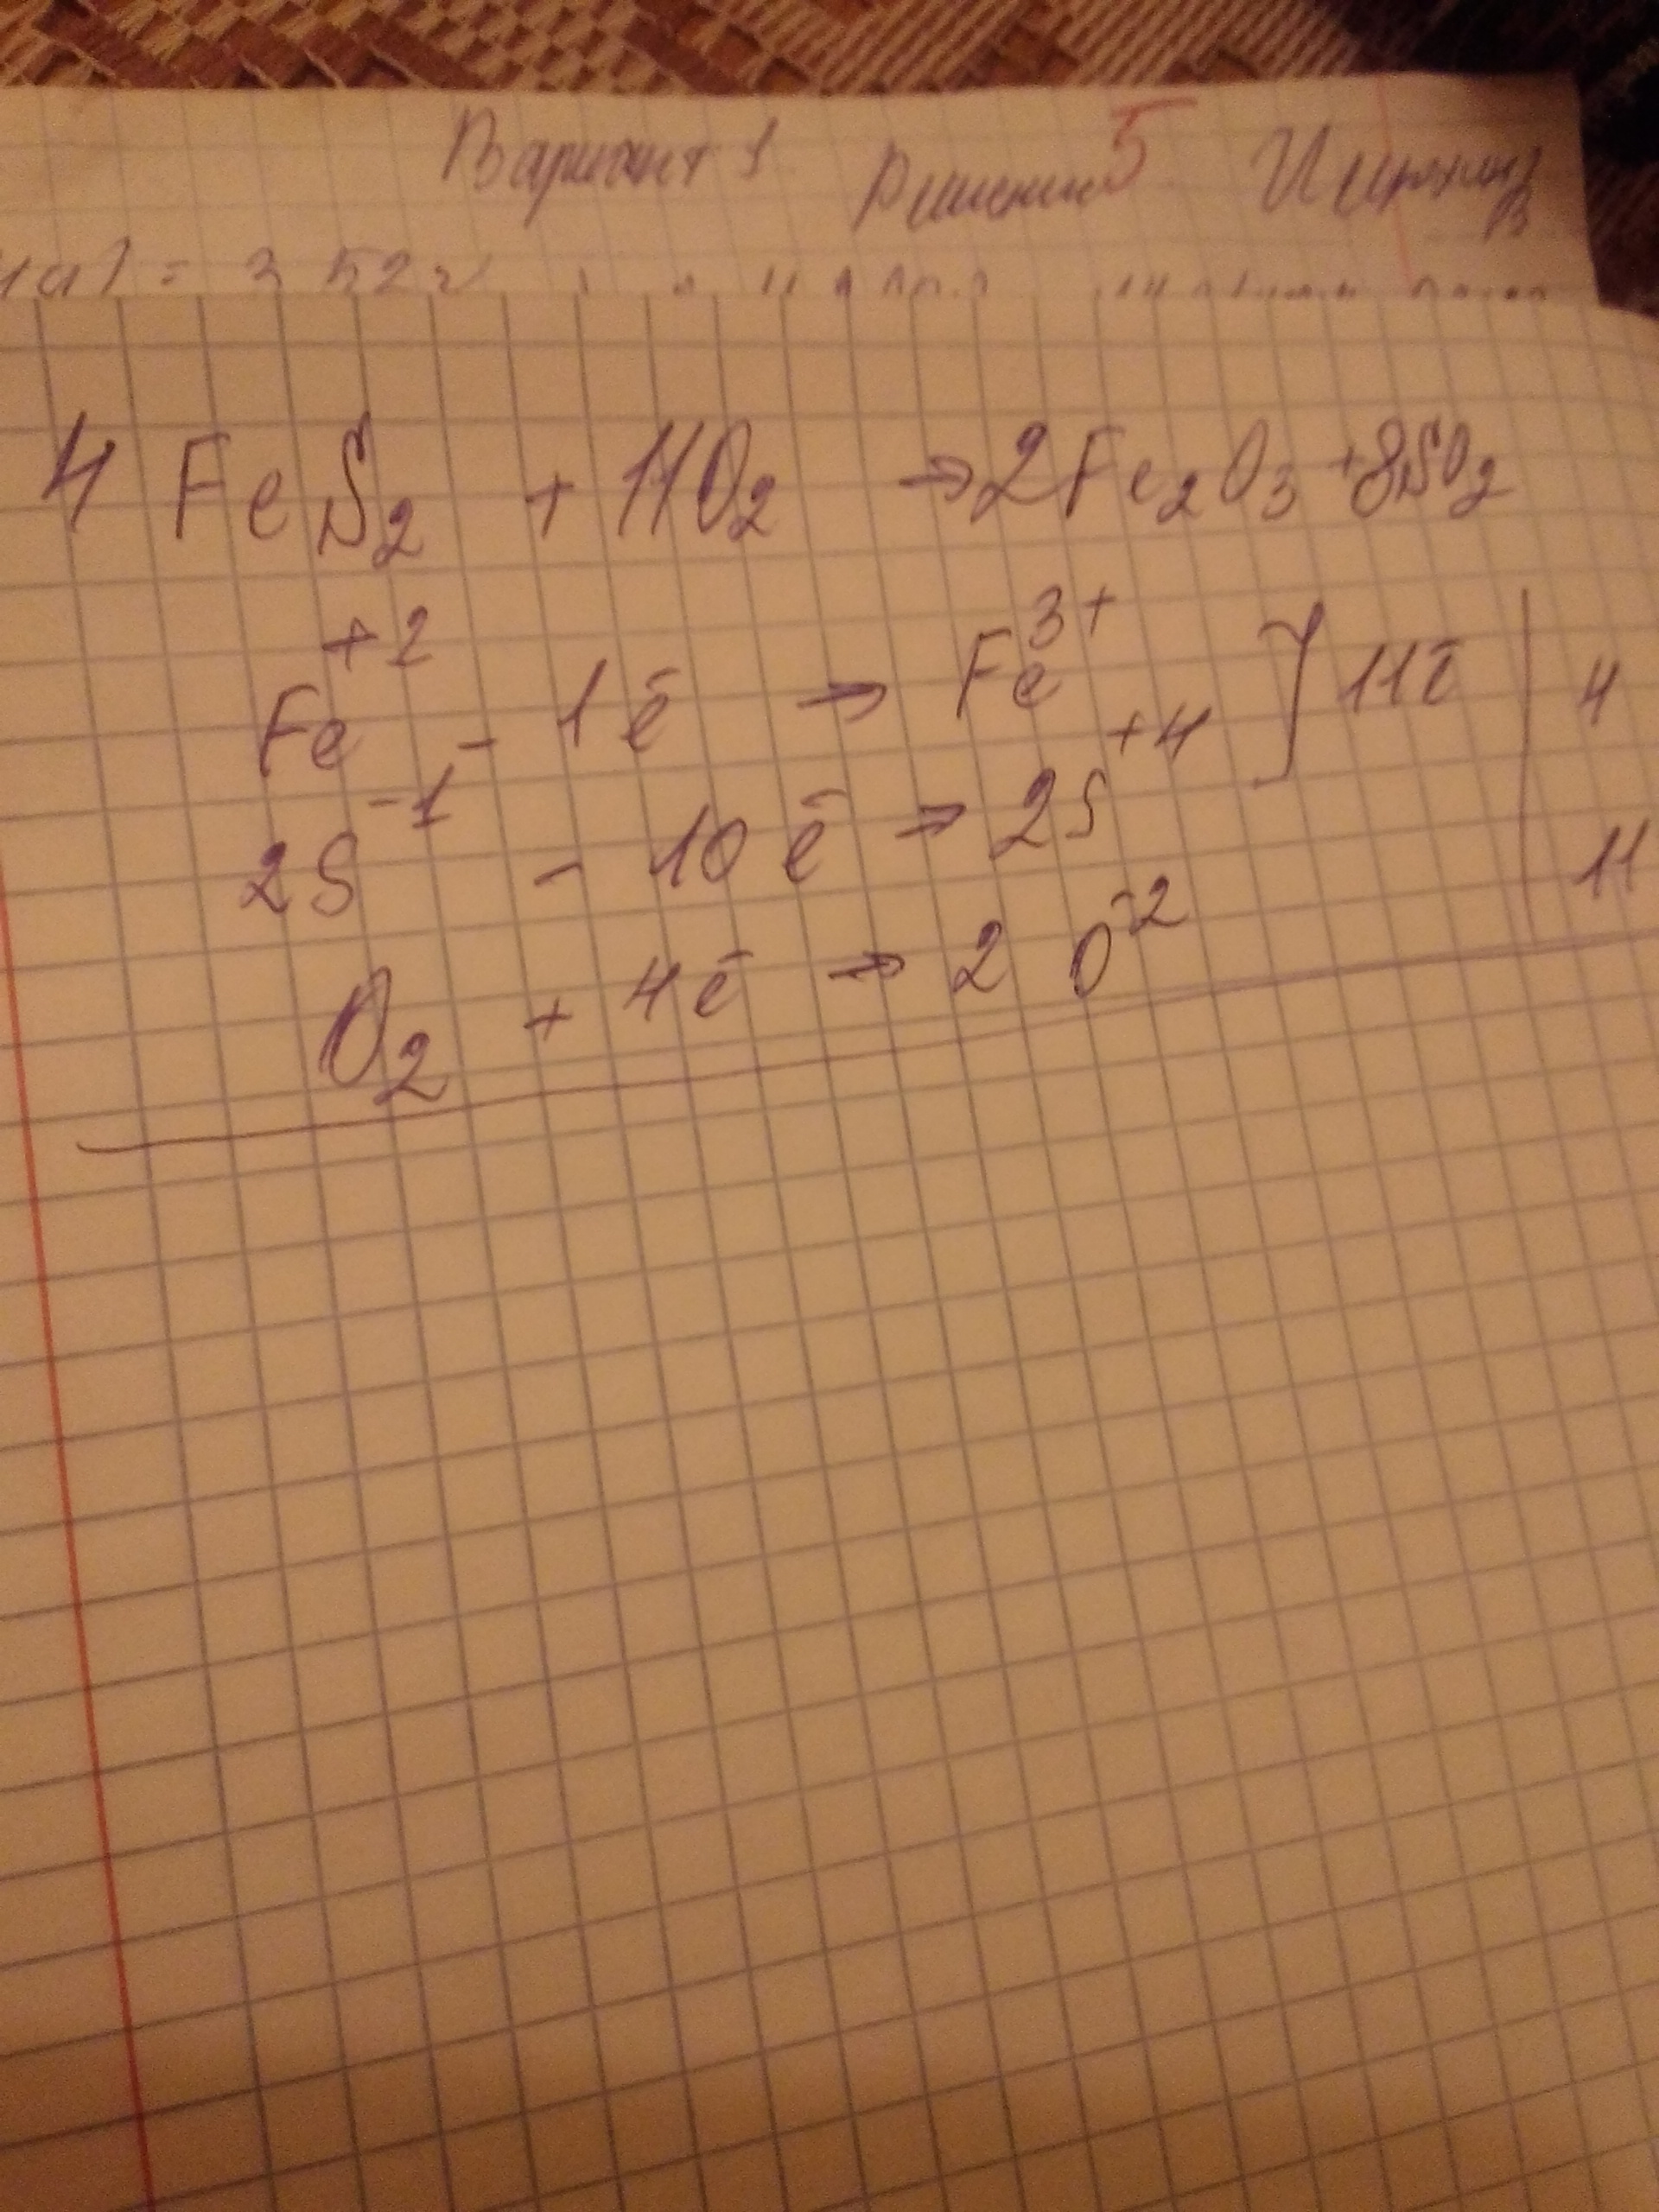 Вариант 1 Решение 5
= 352г
4 FeS2 + 11O2 → 2Fe2O3 + 8SO2
Fe+2 - 1ē → Fe3+ ] 11ē | 4
2S-1 - 10ē → 2S+4
O2 + 4ē → 2 O-2 | 11